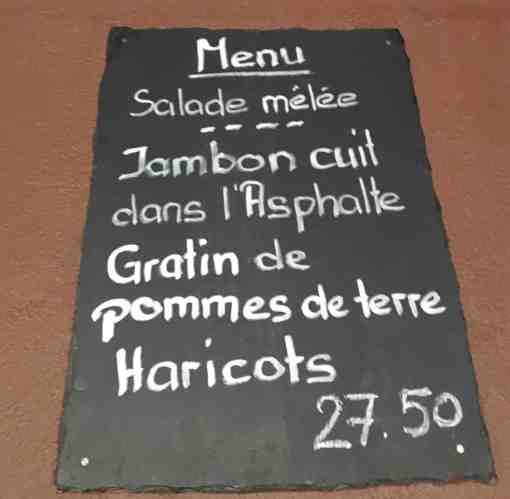 Menu
Salade mélée
- - - -
Jambon cuit
dans l'Asphalte
Gratin de
pommes de terre
Haricots
27.50